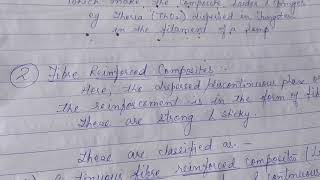 which make the composite harder & stronger
eg Thoria (ThO₂) dispersed in Tungsten
in the filament of a lamp
② Fibre Reinforced Composites :-
Here, the dispersed discontinuous phase or
the reinforcement is in the form of fib
These are strong & sticky.
These are classified as. -
continuous fibre reinforced composites
& continuous